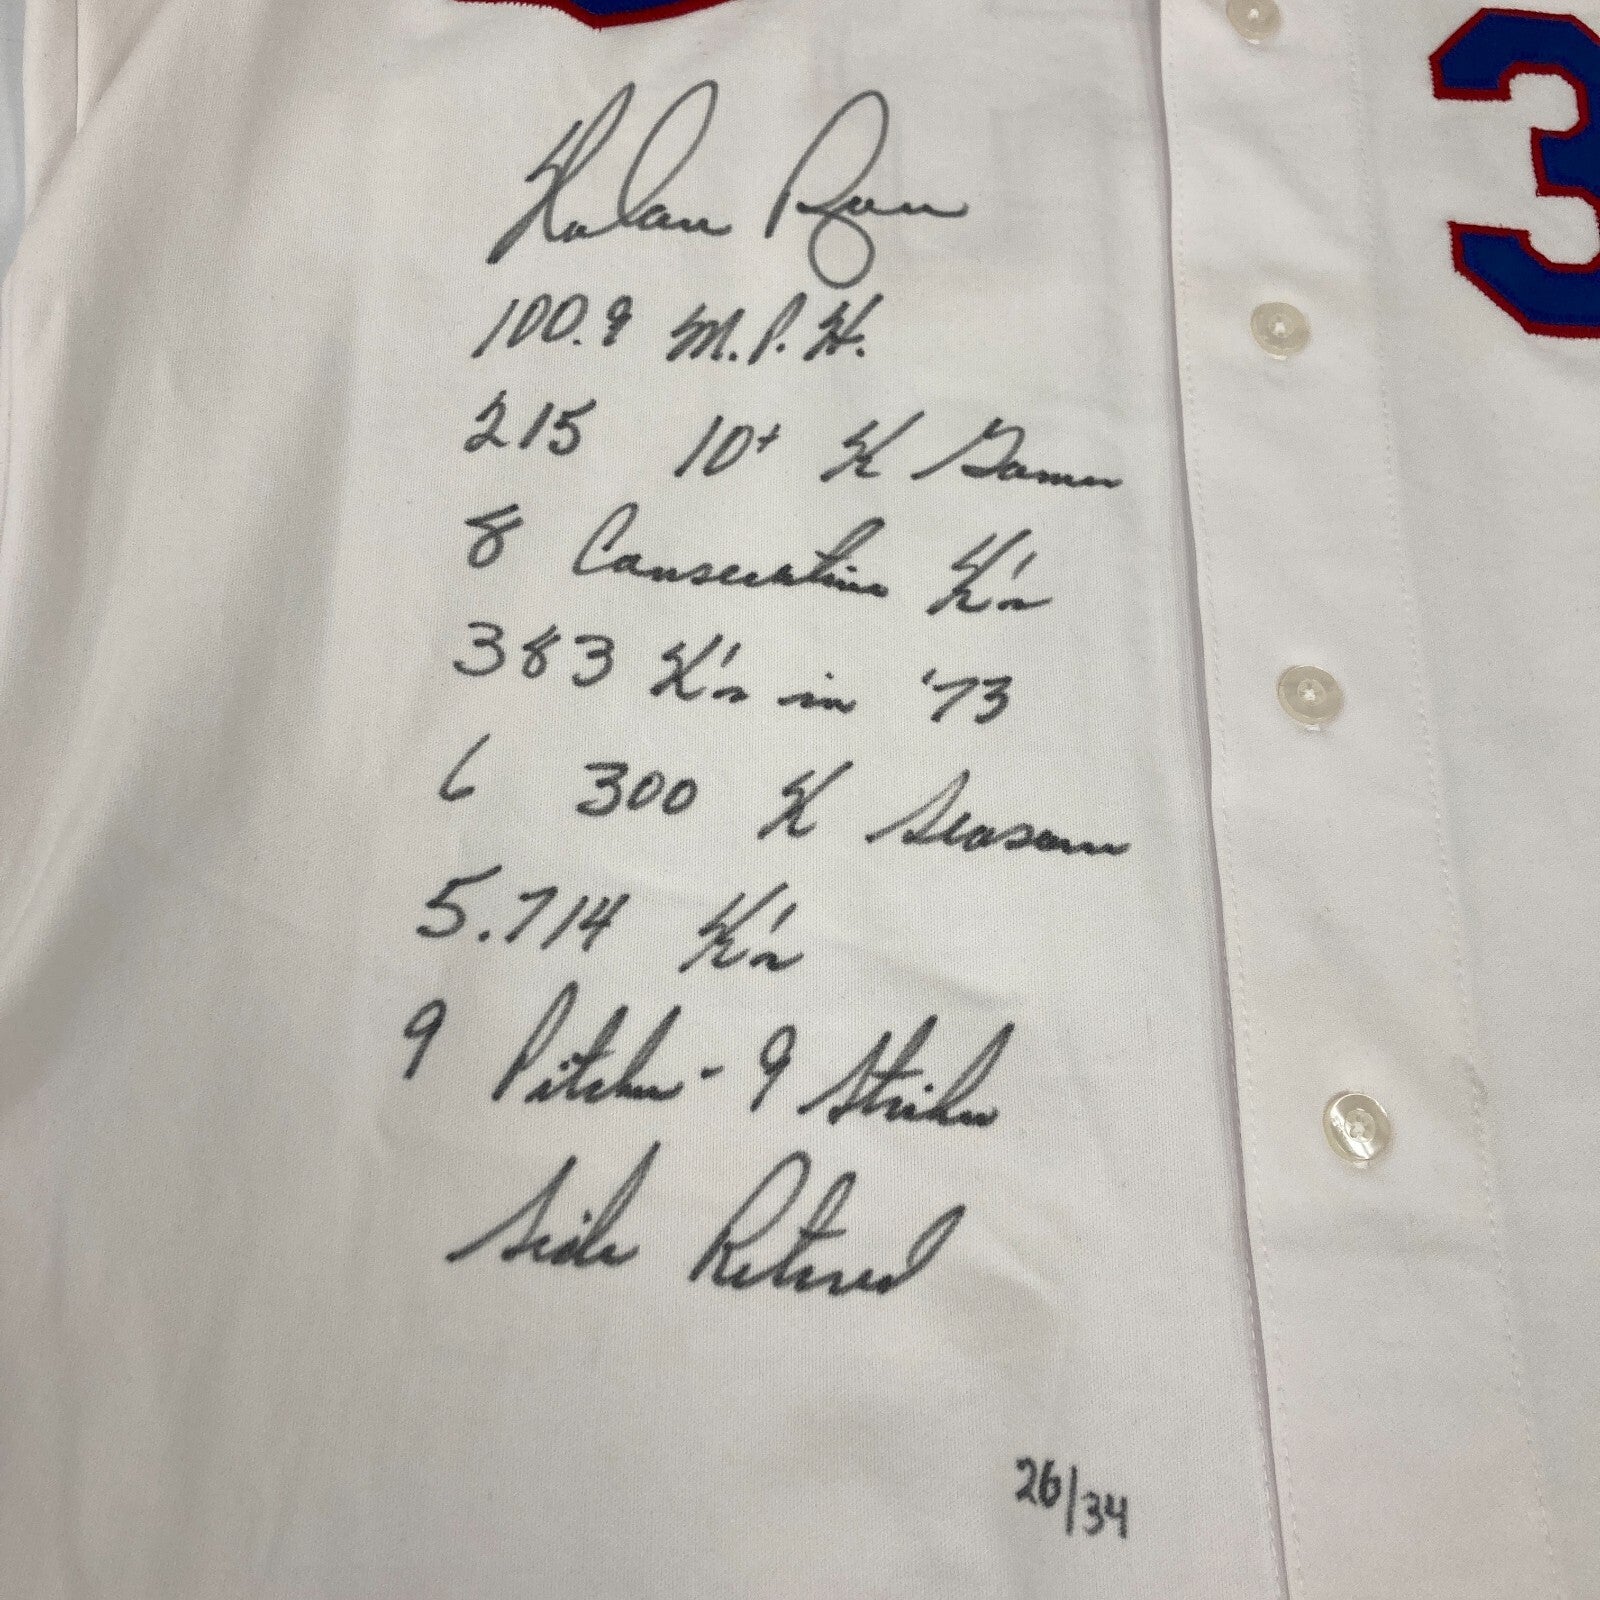 Nolan Ryan
100.9 M.P.H.
215 10+ K Games
8 Consecutive K's
383 K's in '73
6 300 K Seasons
5.714 K's
9 Pitches - 9 Strikes
Side Retired
26/34
3